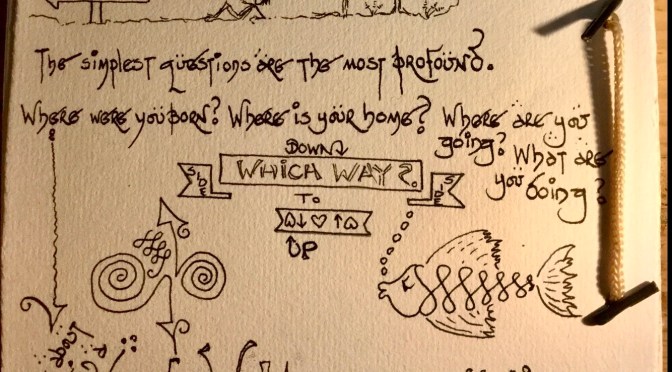 The simplest questions are the most profound.
Where were you born? Where is your home? Where are you
going? What are
you doing?
DOWN
SIDE WHICH WAY? SIDE
TO
UP
about